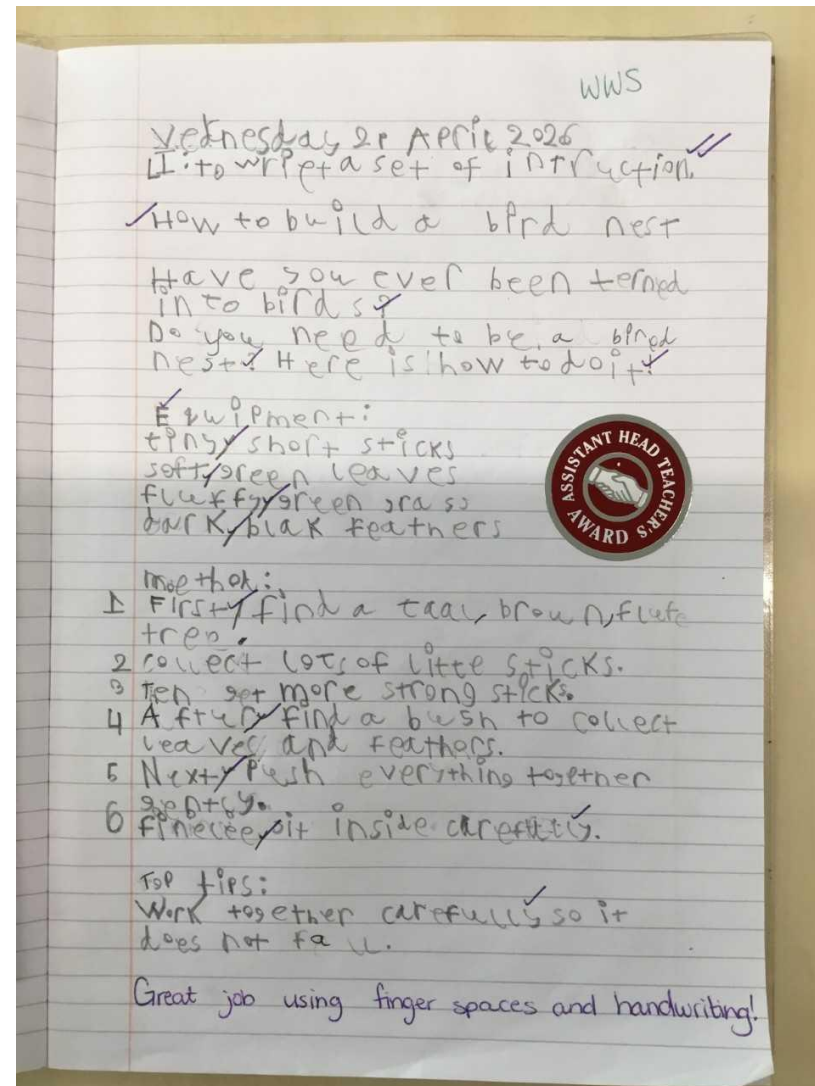 WWS
Vednesday 21 April 2026
LI: to wriet a set of intruction.
How to build a bird nest
Have you ever been terned
in to birds?
Do you need to be a bired
nest? Here is how to do it!
Equipment:
tiny, short sticks
soft, green leaves
fluffy, green grass
dark, blak feathers
methok:
1 Firsty, find a taal, brown, flufe
tree.
2 collect lots of litte sticks.
3 Ten get more strong sticks.
4 Aftury, find a bush to collect
leaves and feathers.
5 Nexty, Push everything together
gently.
6 finelee, pit inside carefully.
TOP tips:
Work together carefully so it
does not fall.
ASSISTANT HEAD TEACHER'S
AWARD
Great job using finger spaces and handwriting!